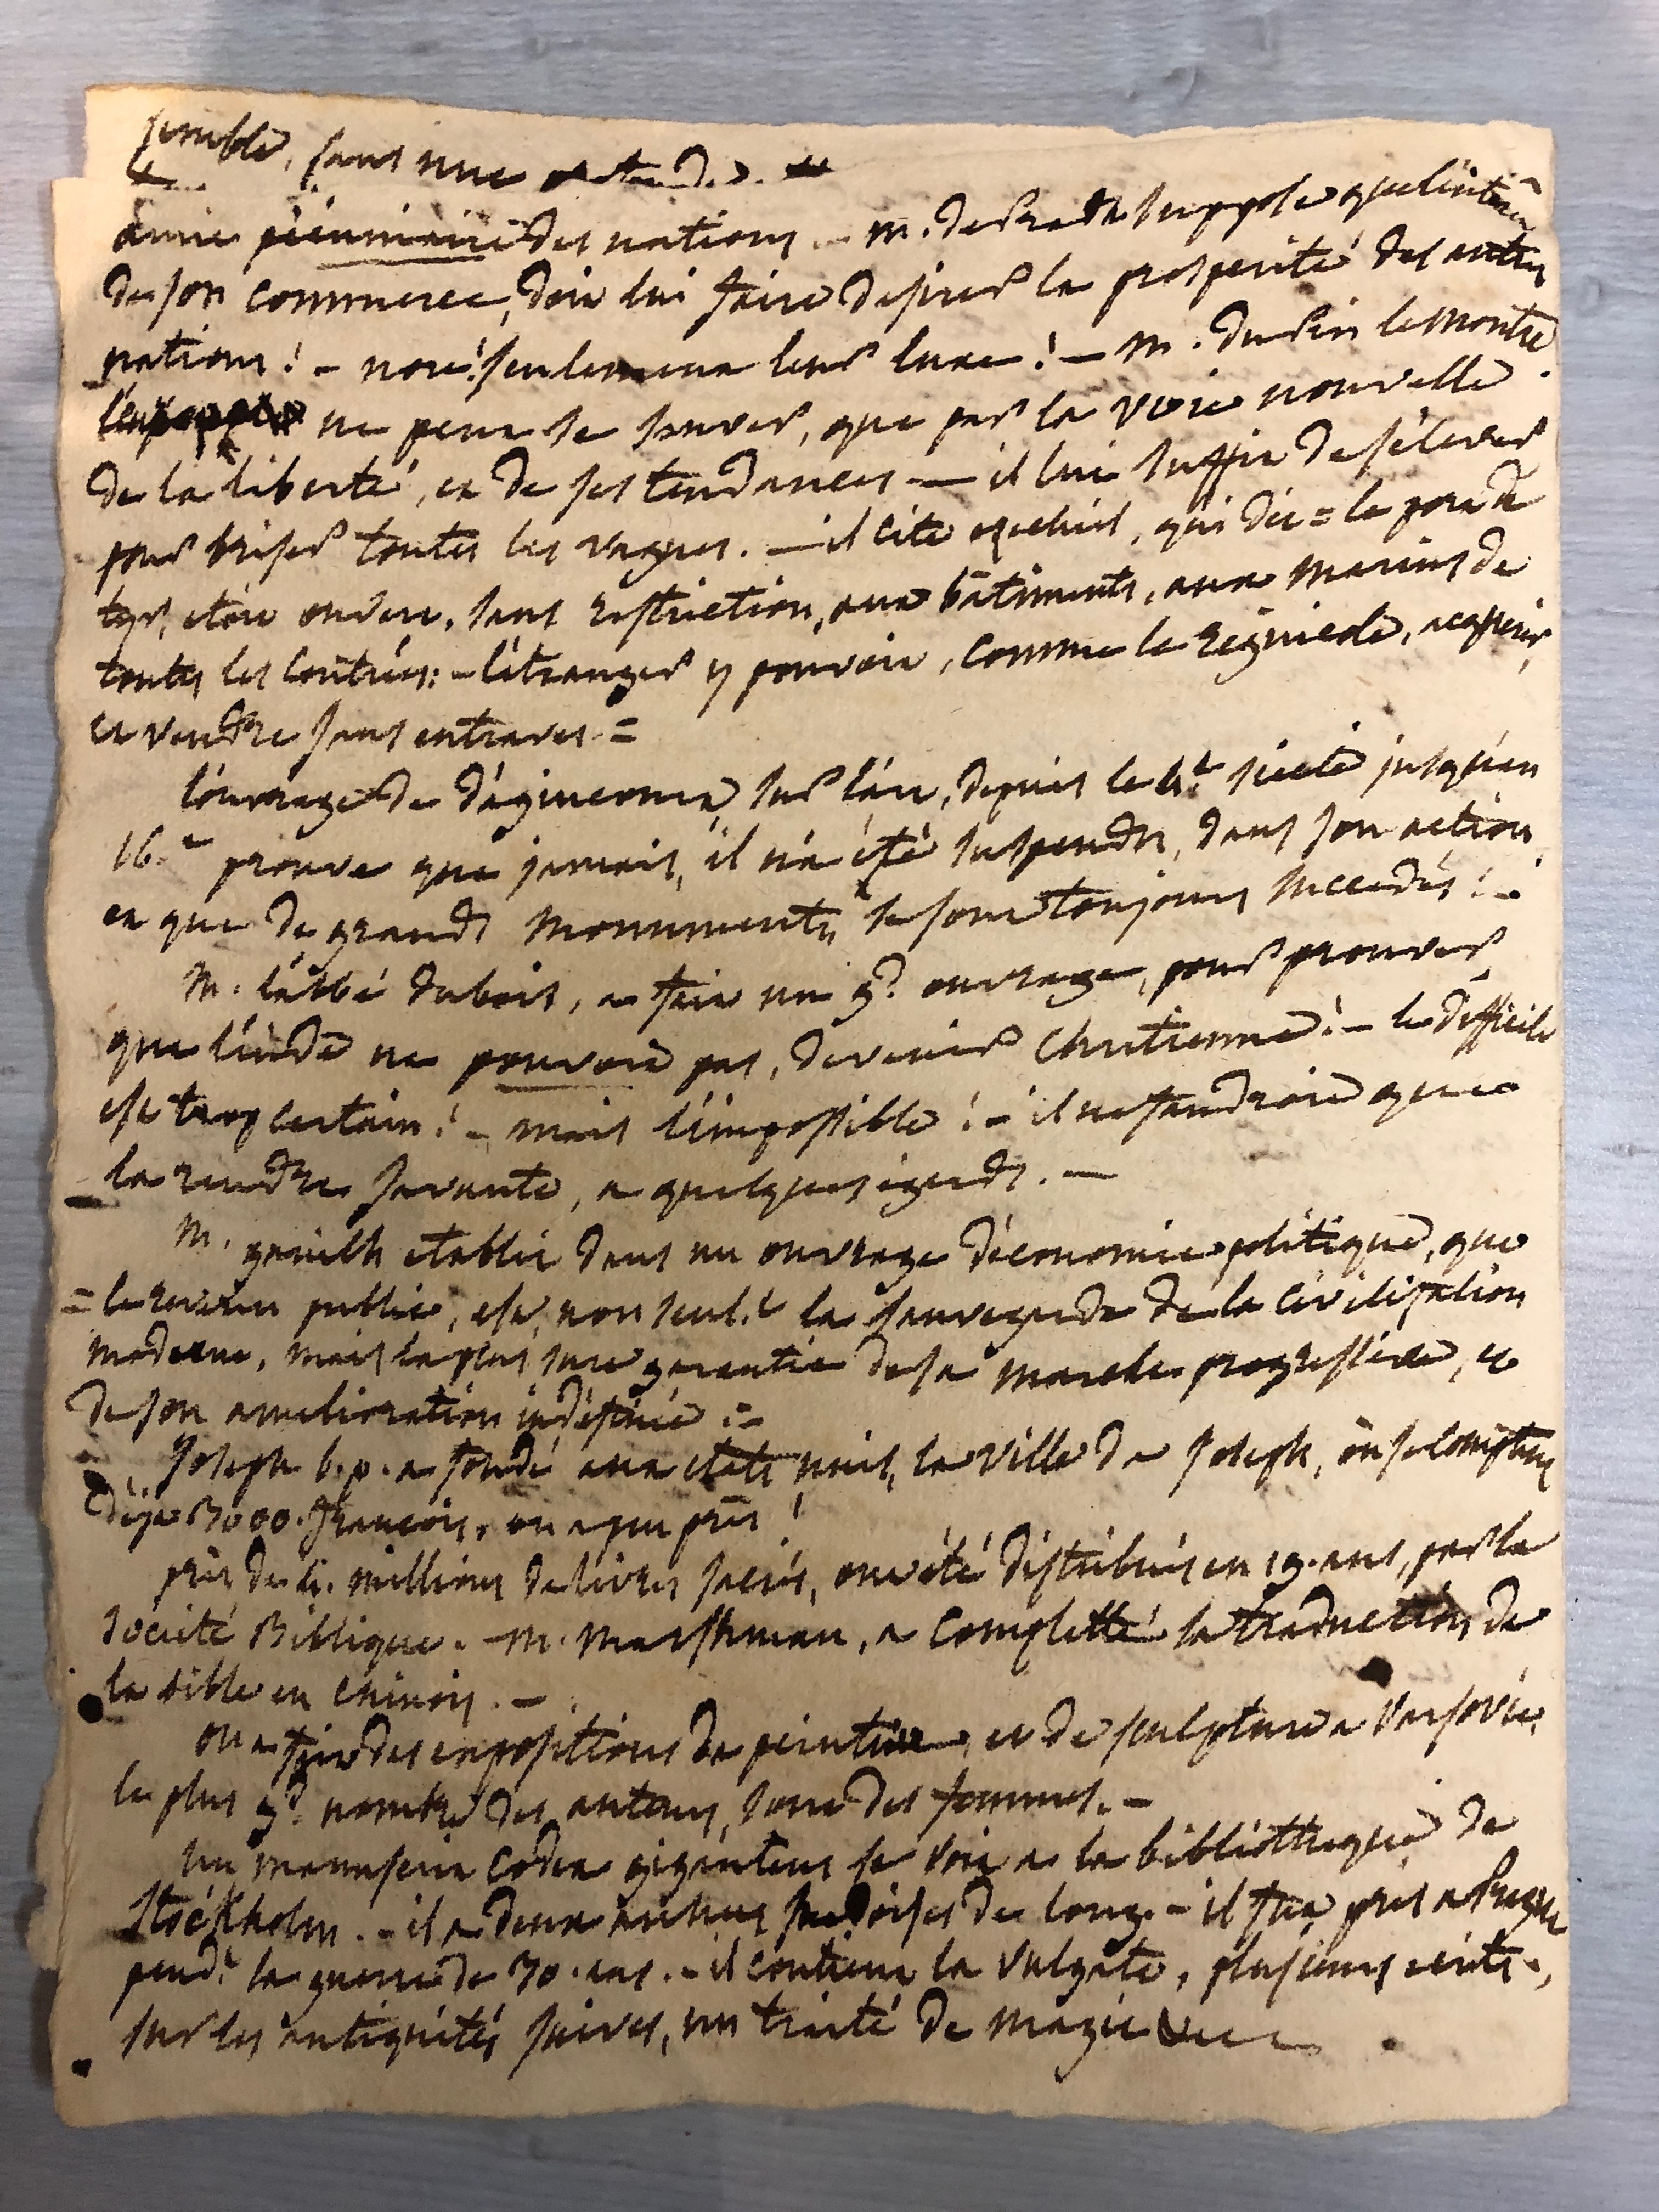 semble, sans une
amie pécuniaire des nations. - m. de Pradt suppose que l'intérêt
de son commerce, doit lui faire desirer la prosperité des autres
nations! - non! seulement leur luxe! - m. Dupin le montre.
ne peut se sauver, que par la voie nouvelle
de la liberté, et de ses tendances - il lui suffit de s'élever
pour briser toutes les vagues. - il cite ezechiel, qui dit = le port de
tyr, etoit ouvert, sans restriction, aux bâtiments, aux marins de
toutes les contrées: - l'étranger y pouvoit, comme le regnicole, acquerir,
et vendre sans entraves =
l'ouvrage de d'agincourt, sur l'art, depuis le 4.e siecle jusqu'au
16.e prouve que jamais, il n'a été suspendu, dans son action
et que de grands monuments se sont toujours succedés! -
M. l'abbé dubois, a fait un gd. ouvrage, pour prouver
que l'inde ne pouvoit pas, devenir chretienne! - le difficile
est trop certain! - mais l'impossible! - il ne faudroit que
la rendre savante, a quelques egards. -
M. ganilh etablit dans un ouvrage d'économie politique, que
= le revenu public, est, non seul.t la sauvegarde de la civilisation
moderne, mais la plus sure garantie de sa marche progressive, et
de son amelioration indéfinie =
Joseph b.p. a fondé aux etats unis, la ville de Joseph, où se comptent
déja 3000. françois, ou a peu près!
près de 4. millions de livres sacrés, ont été distribués en 19. ans, par la
société Biblique. - m. Marshman, a completté sa traduction de
la bible en chinois. -
on a fait des expositions de peinture, et de sculpture a Varsovie,
le plus gd. nombre des auteurs, sont des femmes. -
un manuscrit codex giganteus se voit a la bibliotheque de
Stockholm. - il a deux aunes suedoises de long. - il fut pris a Prague
pend.t la guerre de 30. ans. - il contient la Vulgate, plusieurs ecrits,
sur les antiquités juives, un traité de magie